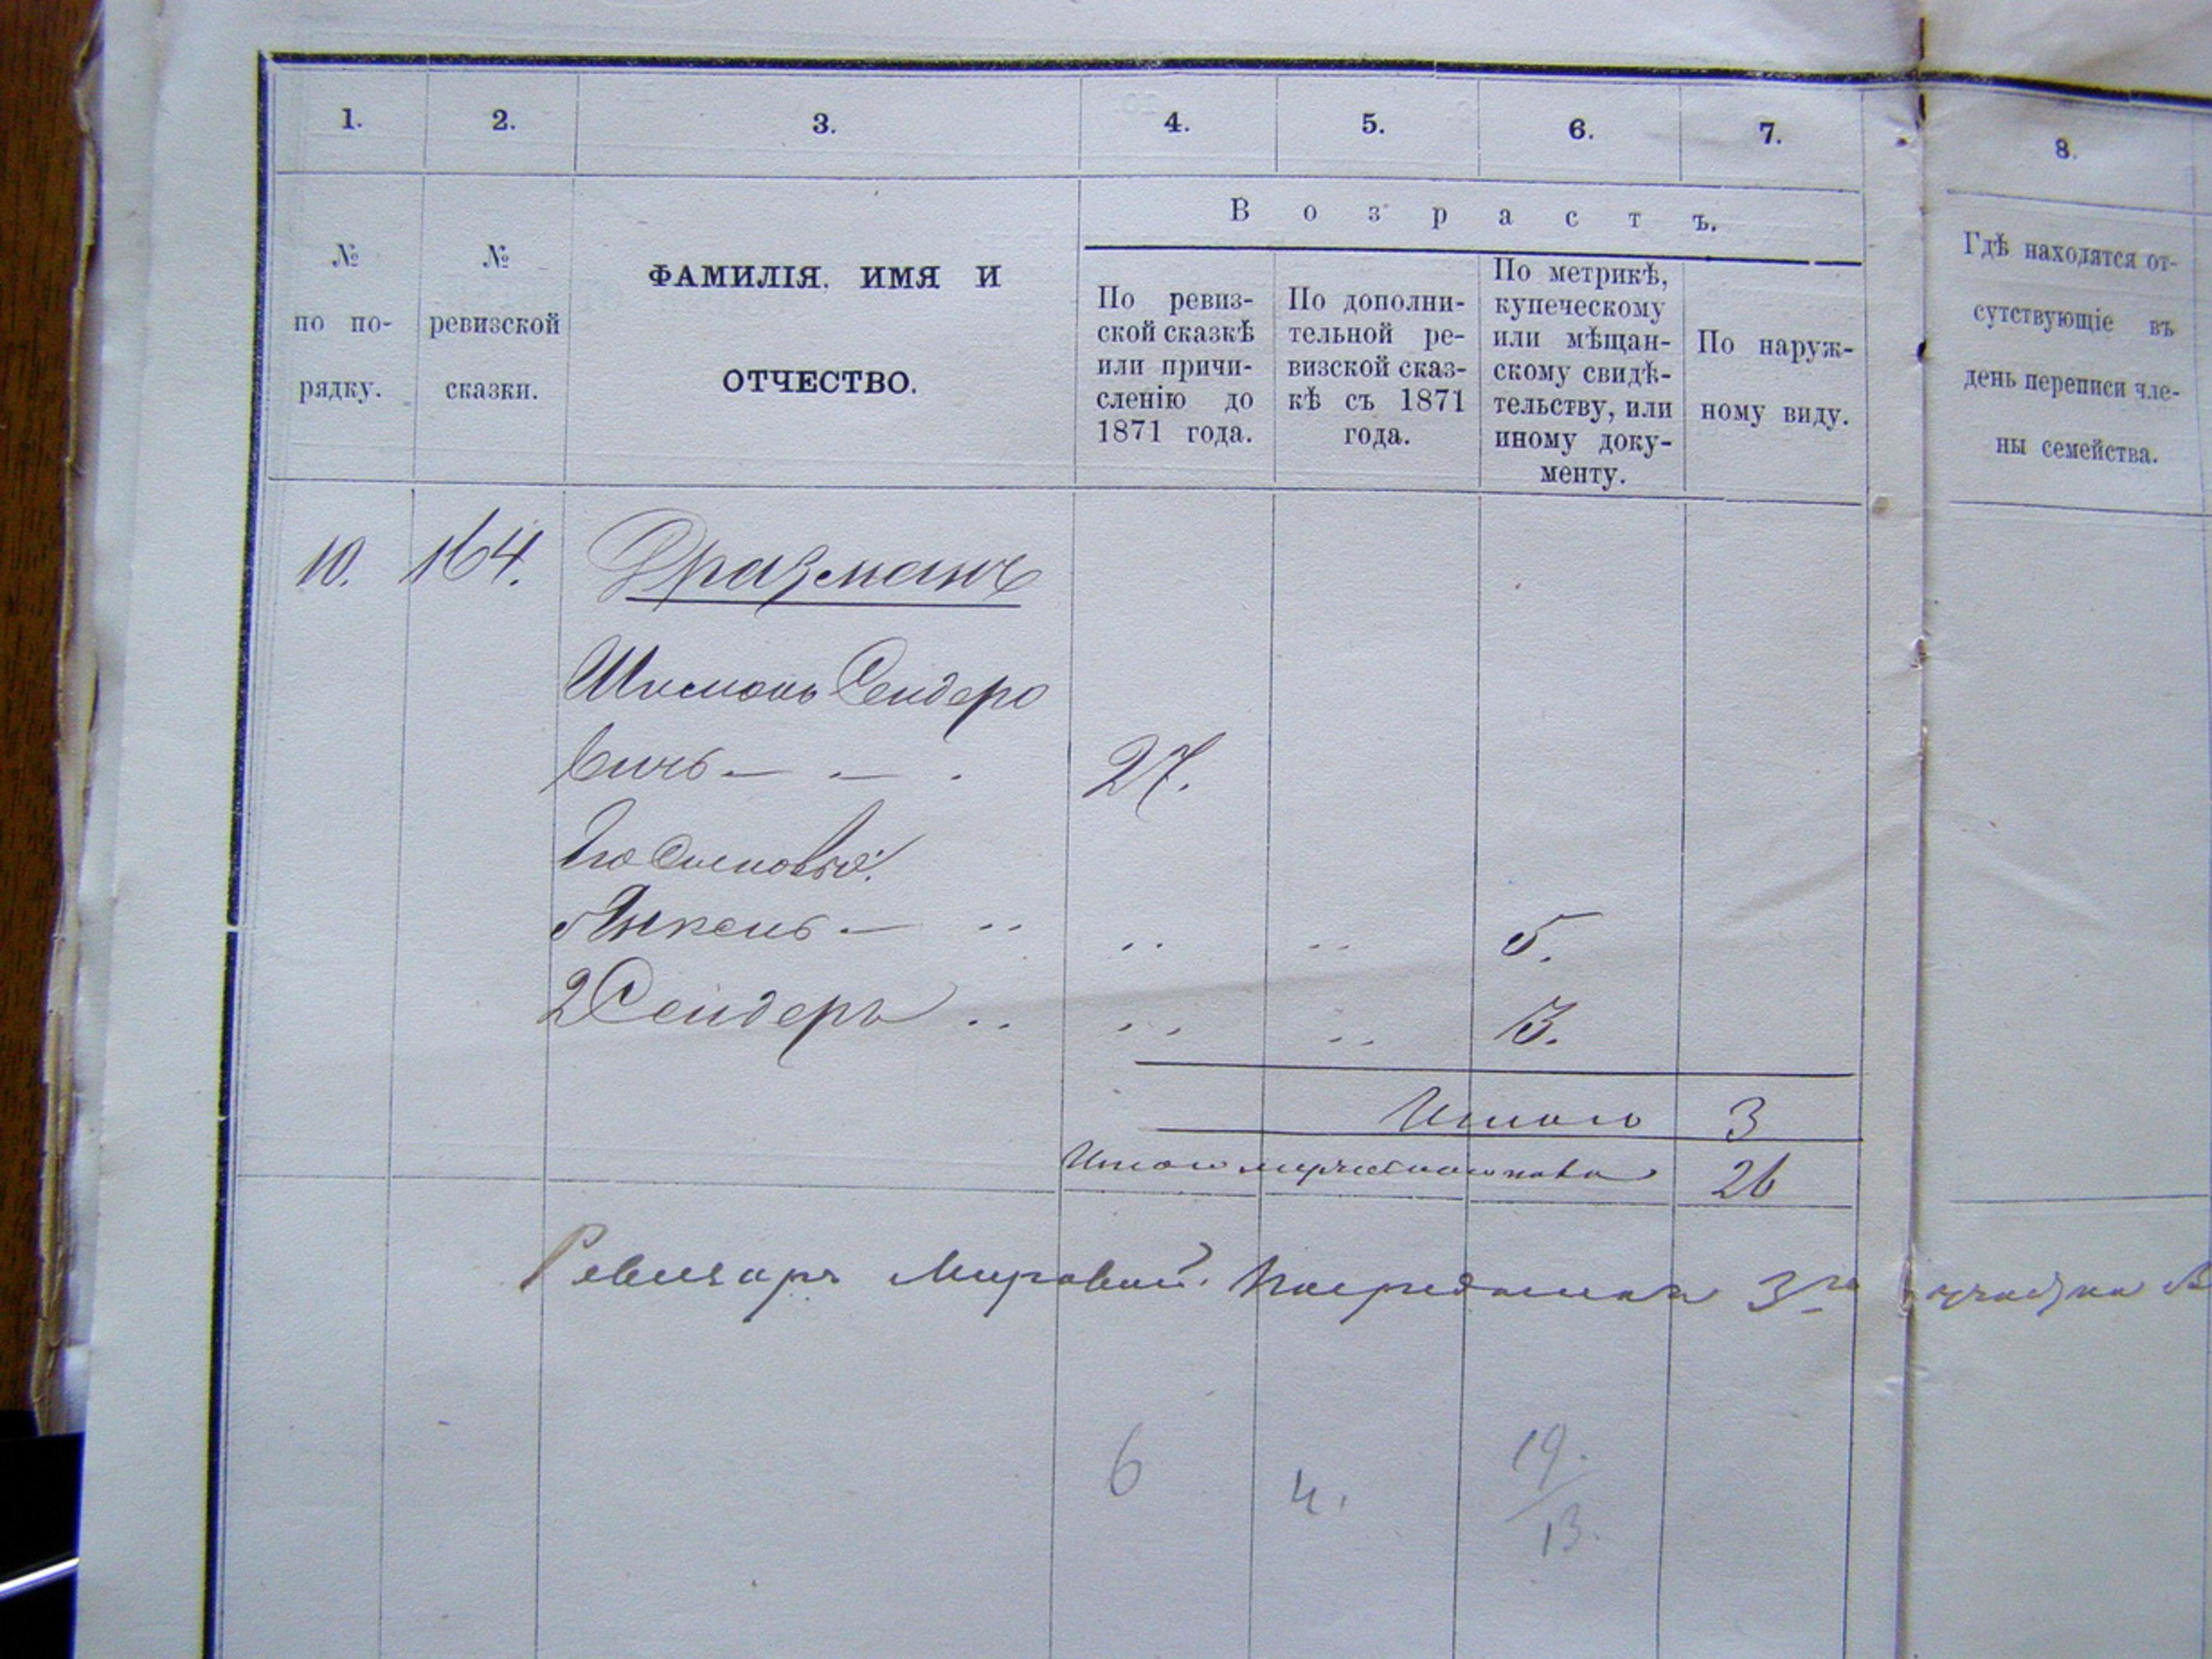 1. 2. 3. 4. 5. 6. 7. 8.
№ по по- рядку.
№ ревизской сказки.
ФАМИЛІЯ, ИМЯ И
ОТЧЕСТВО.
Возрастъ.
По ревиз-
ской сказкѣ
или причи-
сленію до
1871 года.
По дополни-
тельной ре-
визской сказ-
кѣ съ 1871
года.
По метрикѣ,
купеческому
или мѣщан-
скому свидѣ-
тельству, или
иному доку-
менту.
По наруж-
ному виду.
Гдѣ находятся от-
сутствующіе въ
день переписи чле-
ны семейства.
10. 164. Дразманъ
Шимонъ Сендеро
вичъ — — . 27.
Его Сыновья:
Янкель — 5.
2 Сендеръ 3.
Итого 3
Итого 26
Ревизоръ Мировой Посредникъ 3го участка
6 4. 19.
13.